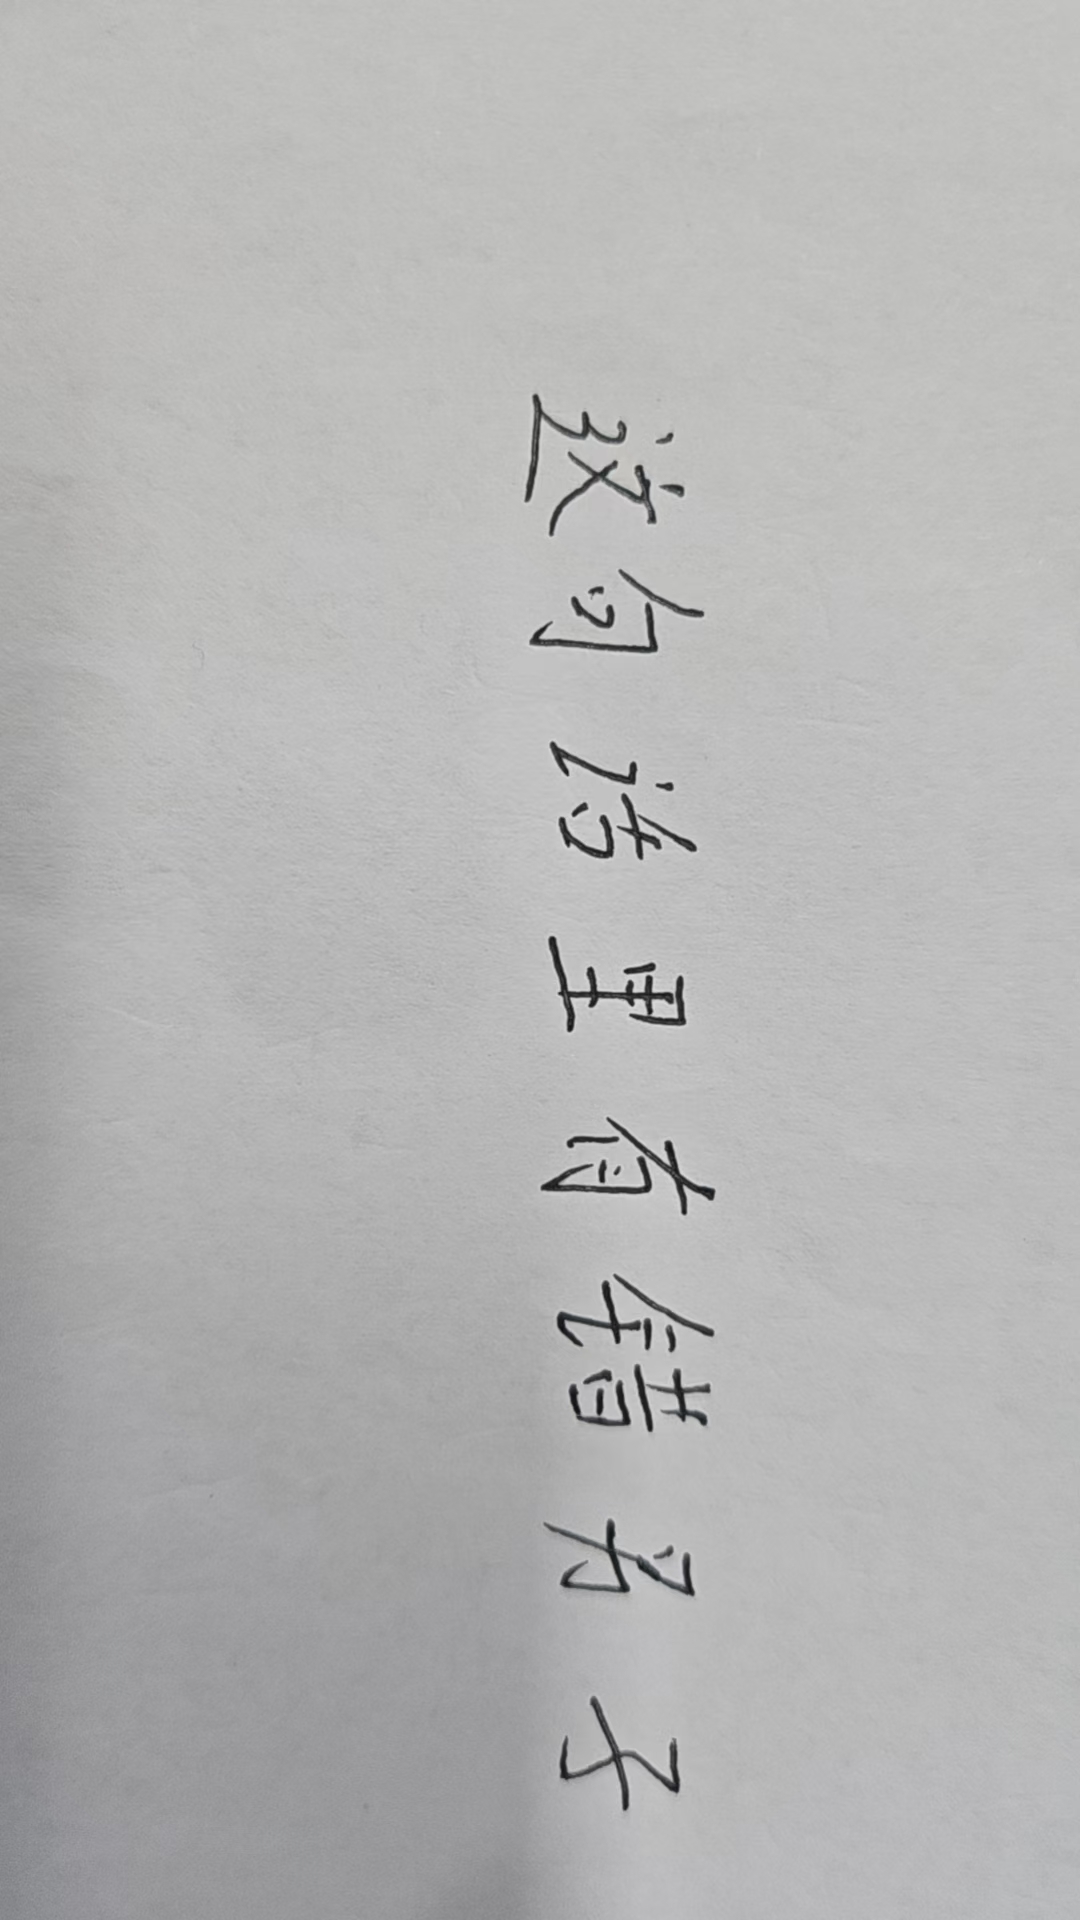 这句话里有错另子